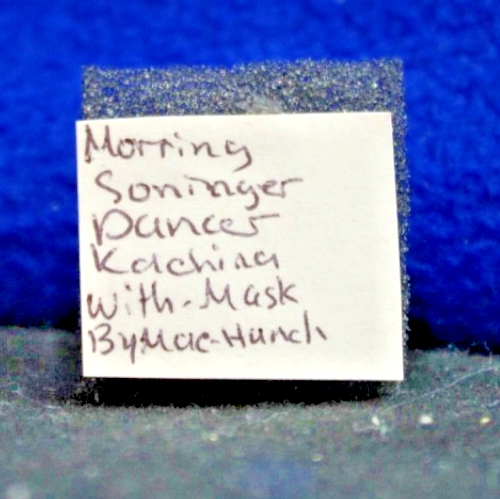 Morring
Soninger
Dancer
Kachina
With-Mask
By Mac-Hunch